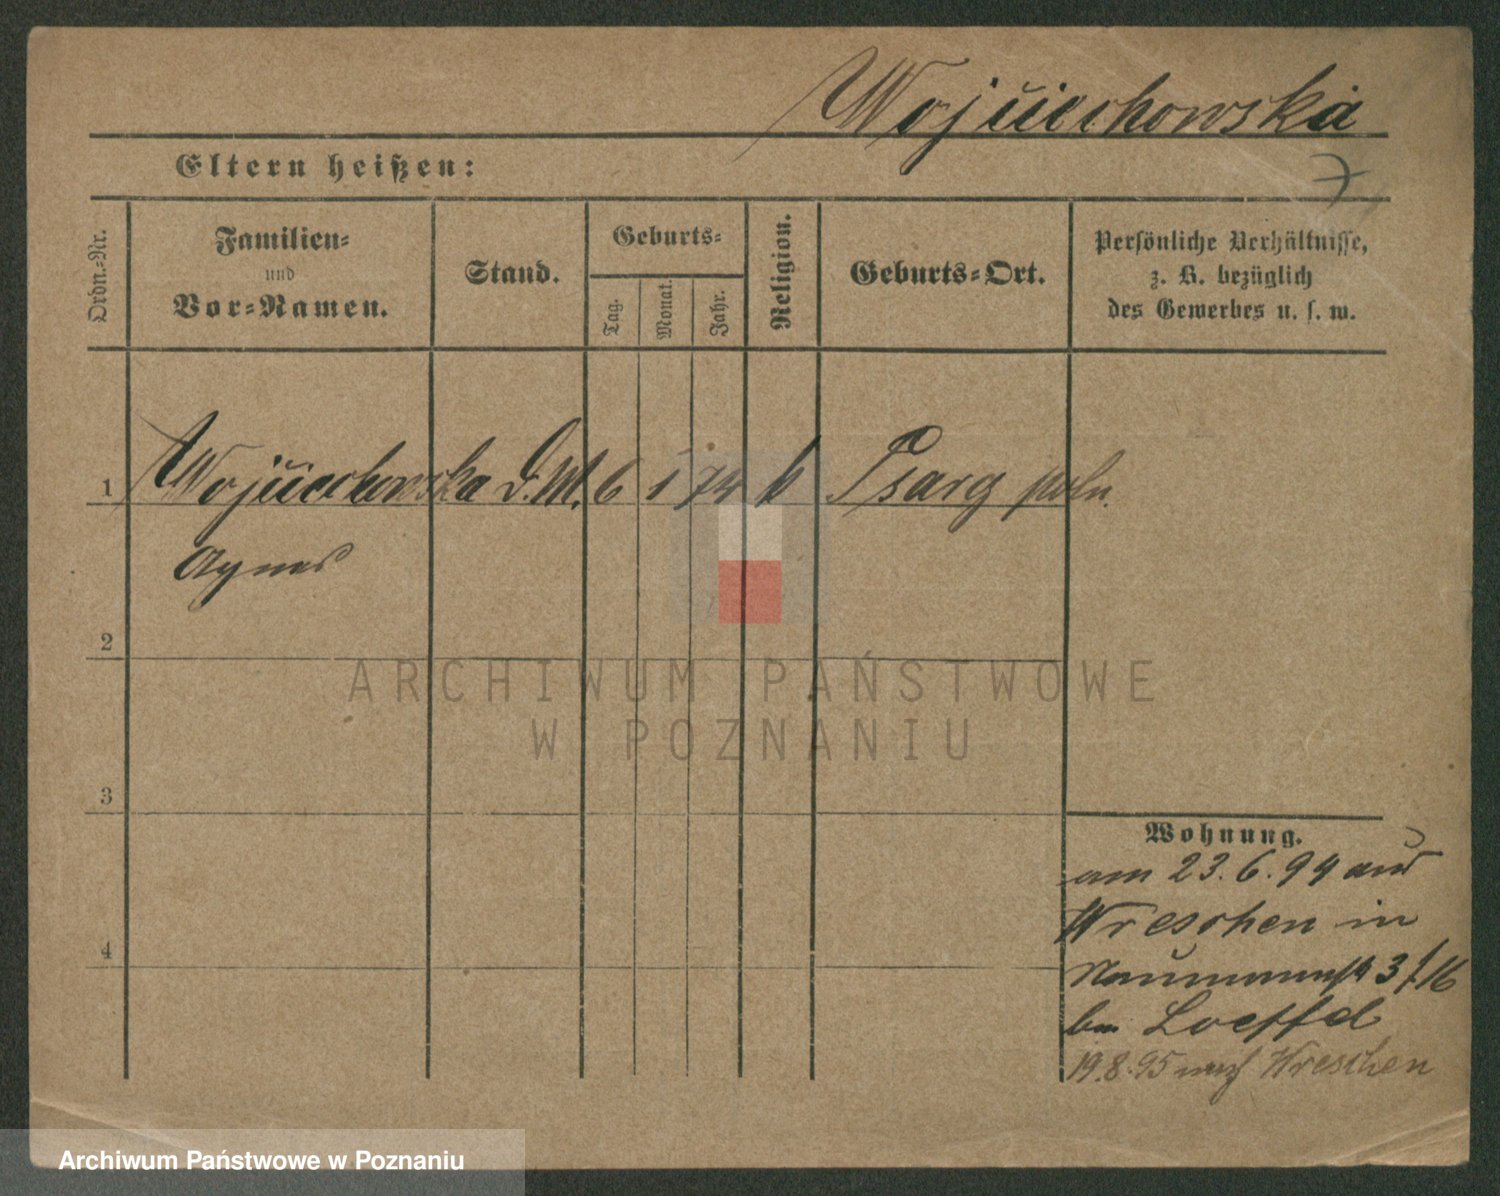 Wojciechowska
Eltern heißen:
Ordn.=Nr.
Familien=
und
Vor=Namen.
Stand.
Geburts=
Tag.
Monat.
Jahr.
Religion.
Geburts=Ort.
Persönliche Verhältnisse,
z. B. bezüglich
des Gewerbes u. s. w.
1 Wojciechowska D. M. 6 1 74 k Psarg poln.
Agnes
2
ARCHIWUM PAŃSTWOWE
W POZNANIU
3
Wohnung.
am 23.6.94 aus
Wreschen in
4
3 / 16
bei Loeffel
19.8.95 nach Wreschen
Archiwum Państwowe w Poznaniu